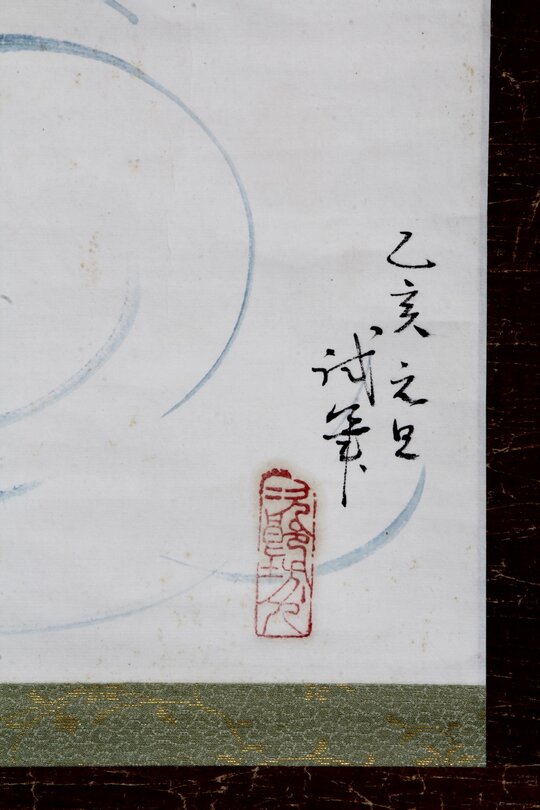 乙亥元旦
試筆